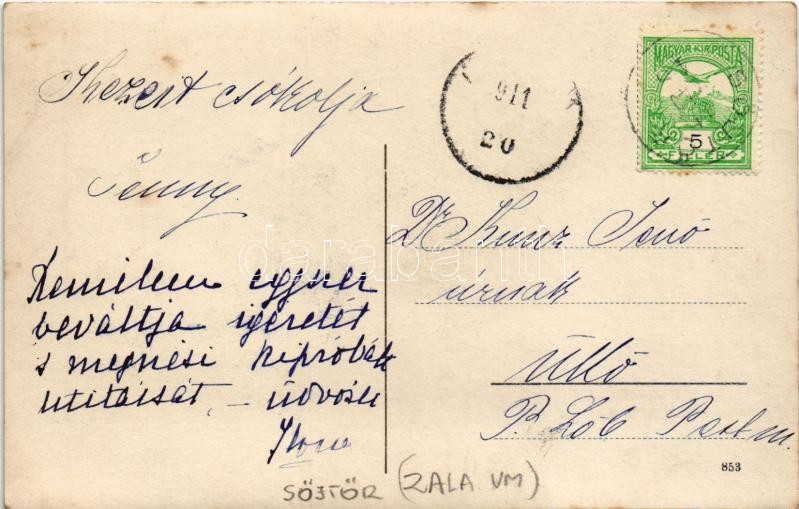 Kezeit csókolja
Jenny.
Remélem egyszer
beváltja igeretét
s megnézi kipróbált
utitársát, – üdvözli
Ilona
911
20
MAGYAR·KIR·POSTA
5
FILLÉR
Dr. Kunz Jenő
úrnak
Üllő
P. Lób
853
SÓSTÓR (ZALA VM)
darabanth